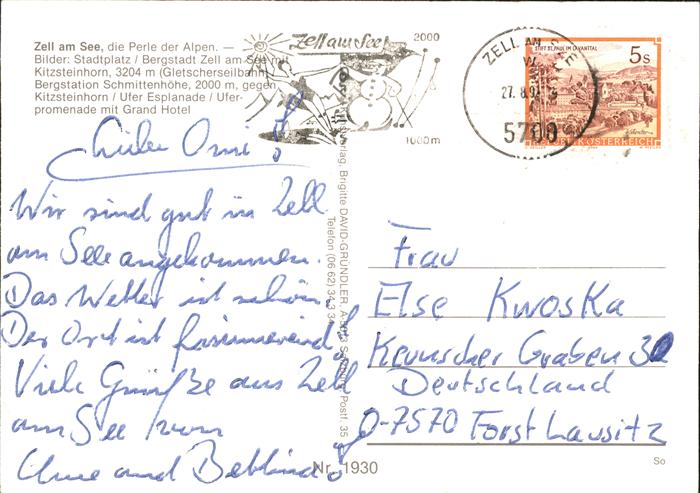 Zell am See, die Perle der Alpen. —
Bilder: Stadtplatz / Bergstadt Zell am See mit
Kitzsteinhorn, 3204 m (Gletscherseilbahn)
Bergstation Schmittenhöhe, 2000 m, gegen
Kitzsteinhorn / Ufer Esplanade / Ufer-
promenade mit Grand Hotel
Zell am See
2000
1000m
ZELL AM SEE
27.8.9
5700
STIFT ST. PAUL IM LAVANTTAL
5s
REPUBLIK ÖSTERREICH
Liebe Omi!
Wir sind gut in Zell
am See angekommen.
Das Wetter ist schön.
Der Ort ist faszinierend!
Viele Grüße aus Zell
am See von
Uwe und
verlag, Brigitte DAVID-GRÜNDLER, Postf. 35
Telefon (0662)
Frau
Else Kwoska
Graben
Deutschland
O-7570 Forst Lausitz
Nr. 1930
So